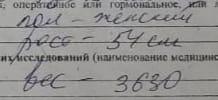 оперативное или гормональное, или
пол - женский
рост - 54 см
исследований (наименование медицинс
вес - 3630